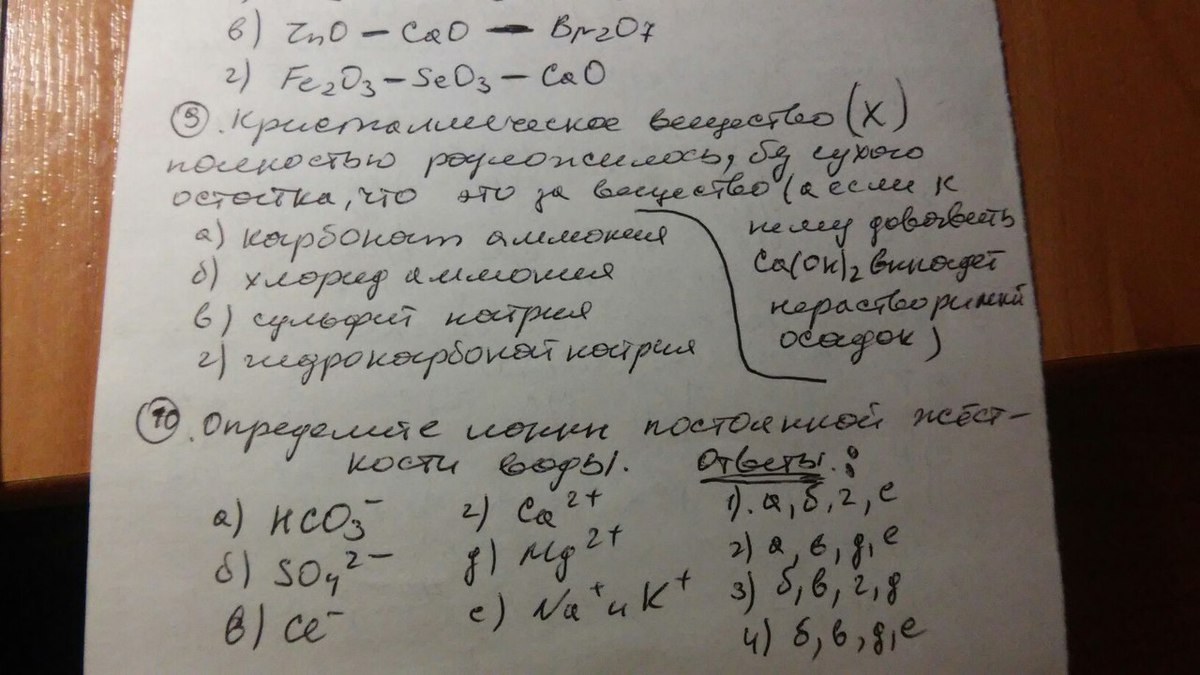 в) ZnO – CaO – Br2O7
г) Fe2O3 – SeO3 – CaO
9. Кристаллическое вещество (X)
полностью разложилось, без сухого
остатка, что это за вещество (а если к
нему добавить
Ca(OH)2 выпадет
нерастворимый
осадок)
а) карбонат аммония
б) хлорид аммония
в) сульфит натрия
г) гидрокарбонат натрия
10. Определите ионы постоянной жёст-
кости воды. Ответы:
а) HCO3⁻ г) Ca²⁺ 1). а, б, г, е
б) SO4²⁻ д) Mg²⁺ 2) а, в, д, е
в) Cl⁻ е) Na⁺ и K⁺ 3) б, в, г, д
4) б, в, д, е